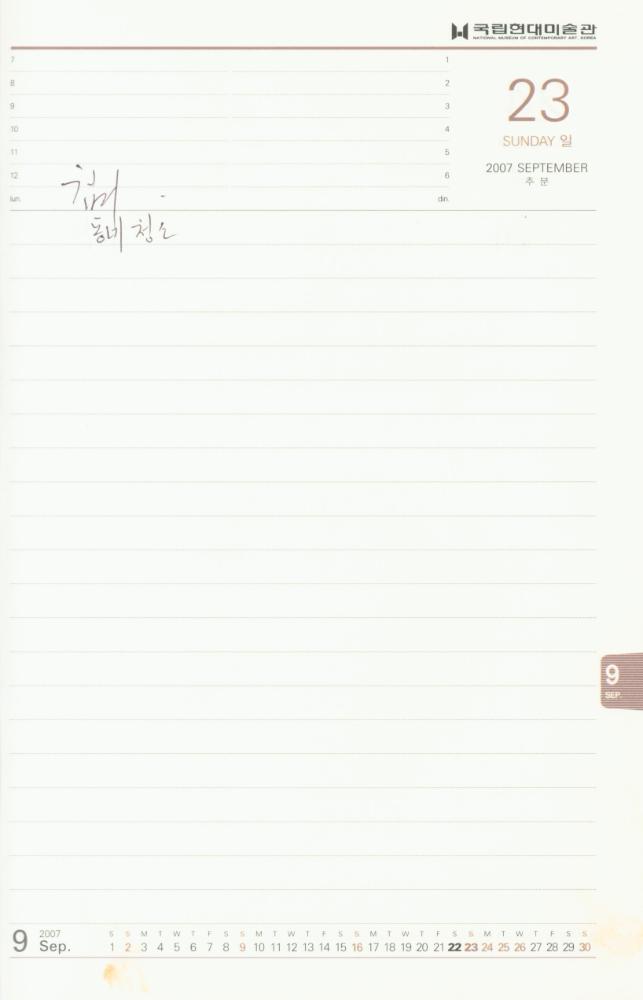 국립현대미술관
NATIONAL MUSEUM OF CONTEMPORARY ART, KOREA
7 1
8 2
9 3
10 4
11 5
12 6
lun. din.
23
SUNDAY 일
2007 SEPTEMBER
추 분
동네 청소
9
SEP.
9 2007 Sep.
S S M T W T F S S M T W T F S S M T W T F S S M T W T F S S
1 2 3 4 5 6 7 8 9 10 11 12 13 14 15 16 17 18 19 20 21 22 23 24 25 26 27 28 29 30